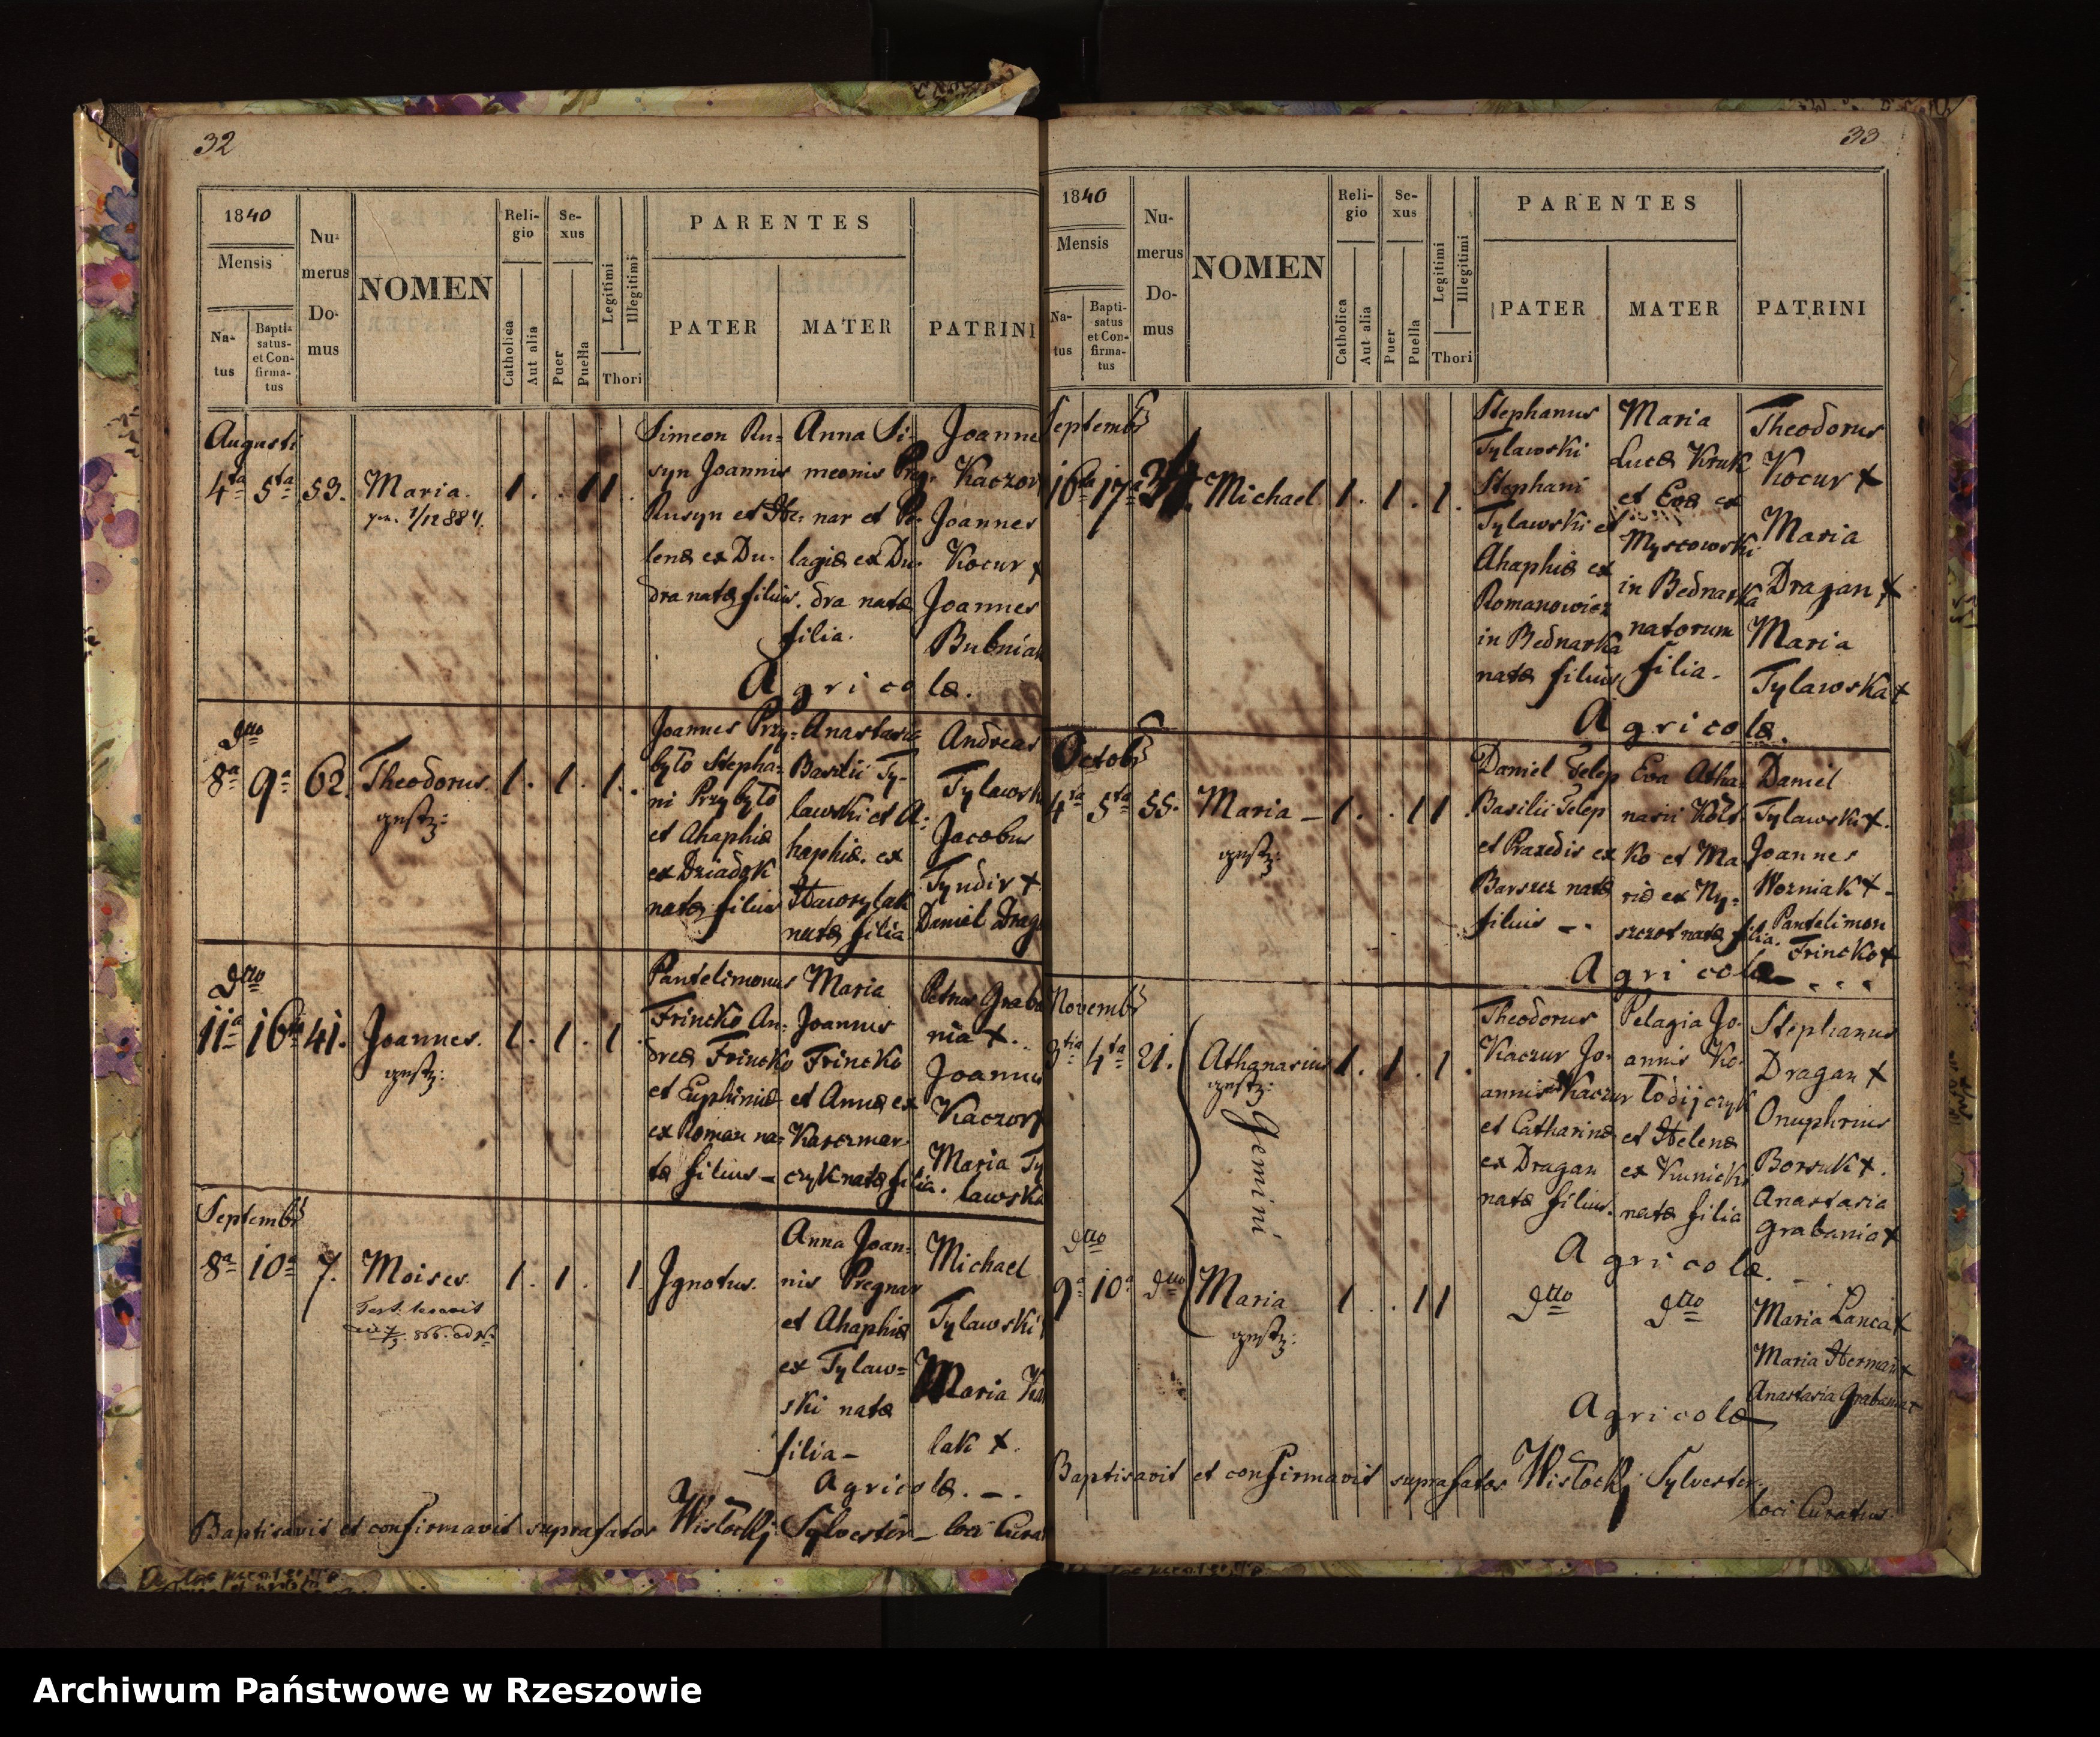 32
1840
Mensis
Na-
tus
Bapti-
satus-
et Con-
firma-
tus
Nu-
merus
Do-
mus
NOMEN
Reli-
gio
Catholica
Aut alia
Se-
xus
Puer
Puella
Legitimi
Illegitimi
Thori
PARENTES
PATER
MATER
PATRINI
Augusti
4ta 5ta 53. Maria. 1. . 1 1.
Simeon Ru-
syn Joannis
Rusyn et He-
lenæ ex Du-
dra natæ filius.
Anna Si-
meonis Preg-
nar et Pe-
lagiæ ex Du-
dra natæ
filia.
Joannes
Kaczor
Joannes
Kocur x
Joannes
Bubniak
Agricolæ.
dtto
8a 9a 62. Theodorus. 1. 1. 1.
Joannes Przy-
było Stepha-
ni Przybyło
et Ahaphiæ
ex Dziadyk
natæ filius
Anastasia
Basilii Ty-
lawski et A-
haphiæ ex
Hawrylak
natæ filia
Andreas
Tylawsk
Jacobus
Tyndir x
Daniel Drag
dtto
11a 16ta 41. Joannes. 1. 1. 1.
Pantelimonus
Frincko An-
dreæ Frincko
et Euphimiæ
ex Roman na-
tæ filius -
Maria
Joannis
Frincko
et Annæ ex
Kaczmar-
czyk natæ filia.
Petrus Graba
nia x.
Joannes
Kaczor
Maria Ty
lawska
Septembr
8a 10a 7. Moises 1. 1. 1.
Ignotus.
Anna Joan-
nis Pregnar
et Ahaphiæ
ex Tylaw-
ski natæ
filia -
Michael
Tylawski
Maria
lak x.
Agricolæ. -.
Baptisavit et confirmavit suprafatos Wisłocki Sylvester - loci Cura
33
1840
Mensis
Na-
tus
Bapti-
satus
et Con-
firma-
tus
Nu-
merus
Do-
mus
NOMEN
Reli-
gio
Catholica
Aut alia
Se-
xus
Puer
Puella
Legitimi
Illegitimi
Thori
PARENTES
PATER
MATER
PATRINI
Septembr
16ta 17a Michael 1. 1. 1.
Stephanus
Tylawski
Stephani
Tylawski et
Ahaphiæ ex
Romanowicz
in Bednarka
natæ filius
Maria
Lucæ Kruk
et Evæ ex
Myscowski
in Bednarka
natorum
filia.
Theodorus
Kocur x
Maria
Dragan x
Maria
Tylawska x
Agricolæ.
Octobr
4ta 5ta 55. Maria - 1. . 1 1.
Daniel Telep
Basilii Telep
et Praxedis ex
Barszcz natæ
filius - .
Eva Atha-
nasii Kołt-
ko et Ma-
riæ ex Ny-
szczot natæ filia.
Daniel
Tylawski x.
Joannes
Wozniak x -
Pantelimon
Frincko x
Agricolæ
Novembr
3tia 4ta 21. Athanasius 1. 1. 1.
Gemini
Theodorus
Kaczur Jo-
annis Kaczur
et Catharinæ
ex Dragan
natæ filius.
Pelagia Jo-
annis Ko-
łodijczyk
et Helenæ
ex Kunicki
natæ filia
Stephanus
Dragan x
Onuphrius
Borsuk x.
Anastasia
Grabania x
Agricolæ.
dtto
9a 10a dtto Maria 1. . 1 1
dtto
dtto
Maria Łanca x
Maria Herman x
Anastasia Grabania x
Agricolæ
Baptisavit et confirmavit suprafatos Wisłocki Sylvester
loci Curatus.
Archiwum Państwowe w Rzeszowie